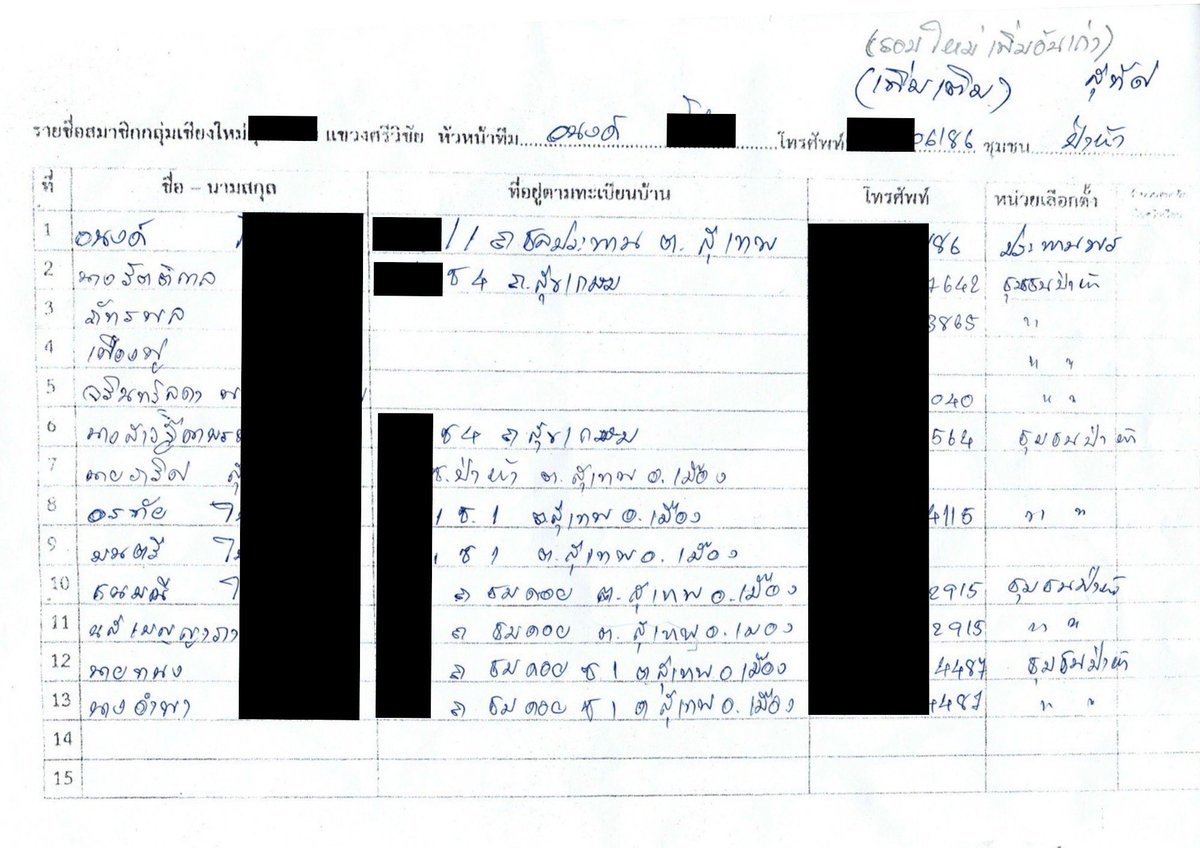 (รอบใหม่ เพิ่มอันเก่า)
(เพิ่มเติม) สุทัศ
รายชื่อสมาชิกกลุ่มเชียงใหม่ แขวงศรีวิชัย หัวหน้าทีม อนงค์ โทรศัพท์ 06186 ชุมชน ป่าห้า
ที่ ชื่อ – นามสกุล ที่อยู่ตามทะเบียนบ้าน โทรศัพท์ หน่วยเลือกตั้ง
1 อนงค์ / 1 ถ ชลประทาน ต. สุเทพ 86 ประทานพร
2 นางรัตติกาล ซ 4 ถ.สุขเกษม 7642 ชุมชนป่าห้า
3 ภัทรพล 3865 "
4 เฟื่องฟู " "
5 040 " "
6 นางสาว ซ 4 ถ สุขเกษม 564 ชุมชนป่าห้า
7 นาย ซ.ป่าห้า ต. สุเทพ อ.เมือง
8 อรทัย ซ. 1 ต สุเทพ อ.เมือง 4115 " "
9 มนตรี ซ 1 ต. สุเทพ อ. เมือง
10 ธนมณี ถ ชมดอย ต. สุเทพ อ.เมือง 2915 ชุมชนป่าห้า
11 นส เบญญาภา ถ ชมดอย ต. สุเทพ อ.เมอง 2915 " "
12 นายทนง ถ ชมดอย ซ 1 ต สุเทพ อ เมือง 4487 ชุมชนป่าห้า
13 นางอำพา ถ ชมดอย ซ 1 ต สุเทพ อ. เมือง 4487 " "
14
15